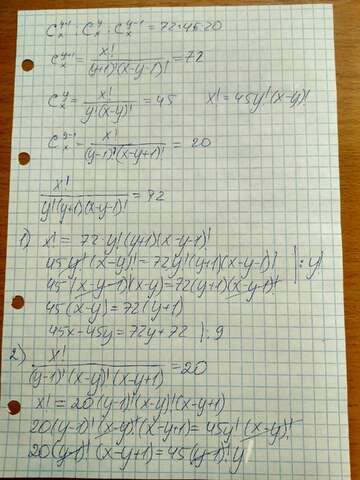 C_x^{y+1} : C_x^y : C_x^{y-1} = 72:45:20
C_x^{y+1} = x!/((y+1)!(x-y-1)!) = 72
C_x^y = x!/(y!(x-y)!) = 45 x! = 45y!(x-y)!
C_x^{y-1} = x!/((y-1)!(x-y+1)!) = 20
x!/(y!(y+1)(x-y-1)!) = 72
1) x! = 72·y!(y+1)(x-y-1)!
45y!(x-y)! = 72y!(y+1)(x-y-1)! |: y!
45(x-y-1)!(x-y) = 72(y+1)(x-y-1)!
45(x-y) = 72(y+1)
45x-45y = 72y+72 |: 9
2) x!/((y-1)!(x-y)!(x-y+1)) = 20
x! = 20(y-1)!(x-y)!(x-y+1)
20(y-1)!(x-y)!(x-y+1) = 45y!(x-y)!
20(y-1)!(x-y+1) = 45(y-1)!y